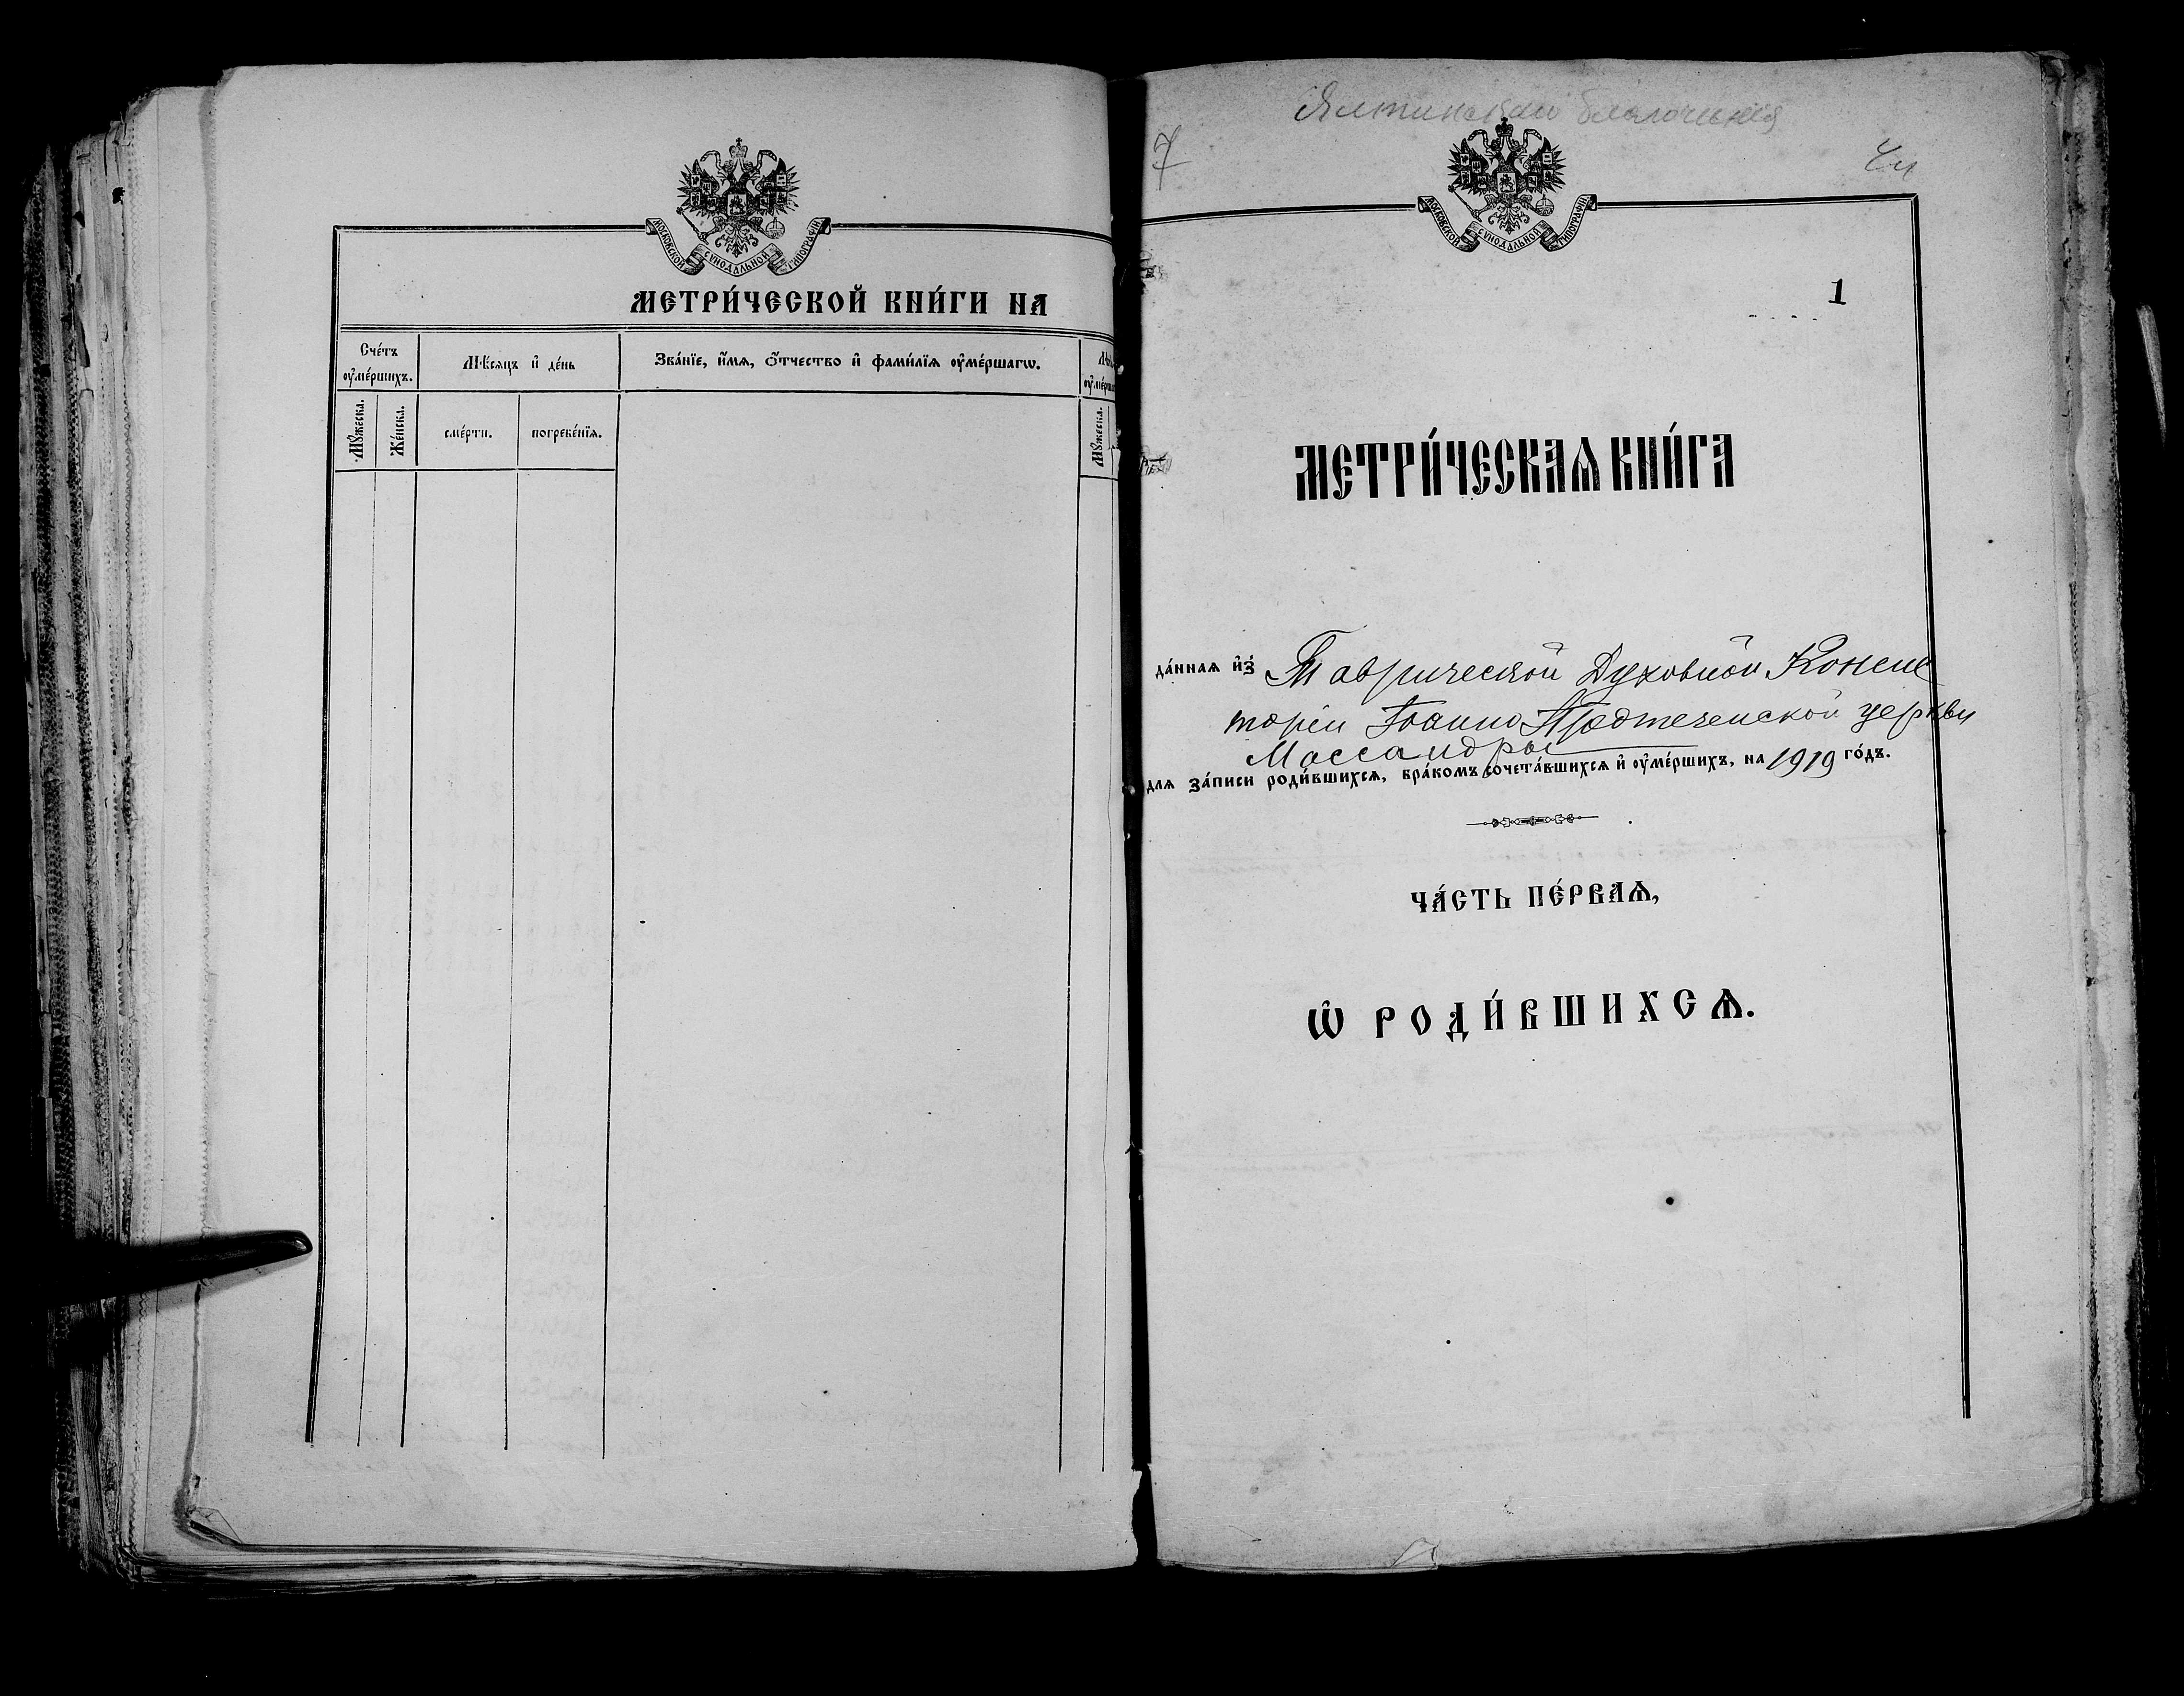 МОСКОВСКОЙ СѴНОДАЛЬНОЙ ТИПОГРАФІИ
МЕТРИ́ЧЕСКОЙ КНИ́ГИ НА
Сче́тъ ᲂу҆ме́ршихъ.
Мѣ́сяцъ и҆ де́нь
Зва́нїе, и҆́мя, ѻ҆́тчество и҆ фами́лїя ᲂу҆ме́ршагѡ.
Мꙋ́жеска.
Же́нска.
сме́рти.
погребе́нїя.
Мꙋ́жеска.
Ялтинскаго благочинія
7
МОСКОВСКОЙ СѴНОДАЛЬНОЙ ТИПОГРАФІИ
1
МЕТРИ́ЧЕСКАѦ КНИ́ГА
да́ннаѧ и҆з̾ Таврической Духовной Консис
торіи Іоанно Предтеченской церкви
Массандры
длѧ за́писи роди́вшихсѧ, бра́комъ сочета́вшихсѧ и҆ ᲂу҆ме́ршихъ, на 1919 го́дъ.
ЧА́СТЬ ПЕ́РВАѦ,
Ѡ҆ РОДИ́ВШИХСѦ.